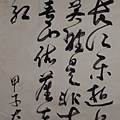 長江東逝
英雄是非
青山依舊在
紅
甲子